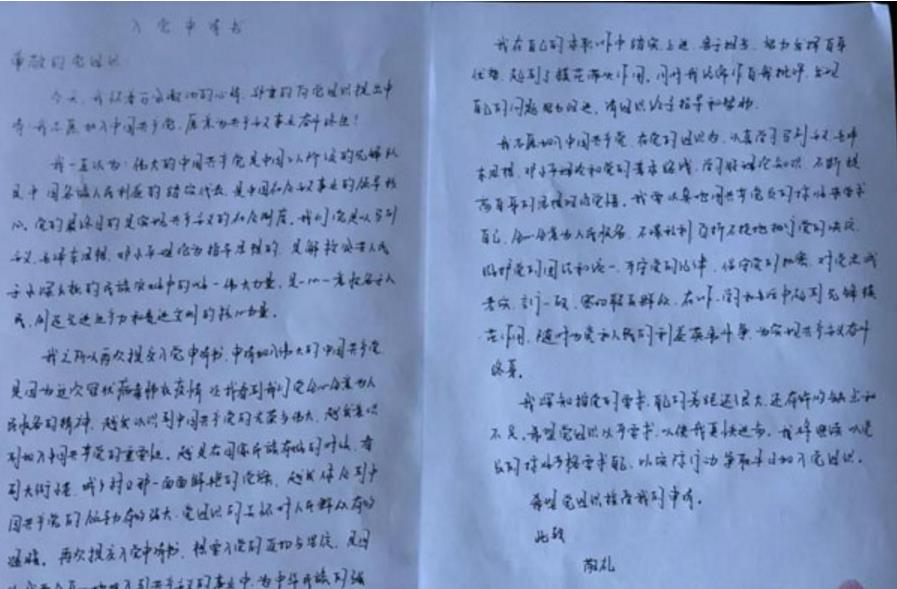 入党申请书
尊敬的党组织:
今天,我怀着万分激动的心情,郑重的向党组织提出申
请:我志愿加入中国共产党,愿意为共产主义事业奋斗终生!
我一直认为:伟大的中国共产党是中国工人阶级的先锋队
是中国各族人民利益的忠实代表,是中国社会主义事业的领导核
心。党的最终目的是实现共产主义的社会制度。我们党是以马列
主义、毛泽东思想、邓小平理论为指导思想的,是解救处于人民
于水深火热的民族灾难中的唯一伟大力量,是一心一意服务于人
民,创造先进生产力和先进文明的核心力量。
我之所以再次提交入党申请书,申请加入伟大的中国共产党
是因为这次冠状病毒肺炎疫情,让我看到我们党全心全意为人
民服务的精神,越发认识到中国共产党的光荣与伟大,越发意识
到加入中国共产党的重要性。越是在国家民族危难的时候,看
到大街小巷,城乡村口那一面面鲜艳的党旗,越发体会到中
国共产党的领导力量的强大,党组织的关怀对人民群众的
温暖。再次提交入党申请书,想要入党的迫切与坚定,是因
共产主义的事业中,为中华民族的强
我在自己的本职工作中踏实上进,努力发挥自身
优势,起到了模范带头作用。同时我经常作自我批评,发现
自己的问题努力改进,请组织给予指导和帮助。
我志愿加入中国共产党,在党的组织内,认真学习马列主义、毛泽
东思想、邓小平理论和党的基本路线,学习好理论知识,不断提
高自身的思想政治觉悟。我要认真地用共产党员的标准来要求
自己,全心全意为人民服务,不谋私利,百折不挠地执行党的决议,
维护党的团结和统一,严守党的纪律,保守党的秘密,对党忠诚
老实,言行一致,密切联系群众,在工作、学习和生活中起到先锋模
范作用,随时为党和人民的利益英勇斗争,为实现共产主义奋斗
终身。
我深知按党的要求,自己的差距还很大,还有许多缺点和
不足,希望党组织从严要求,以使我更快进步。我将继续以党
员的标准严格要求自己,以实际行动争取早日加入党组织。
希望党组织批准我的申请。
此致
敬礼